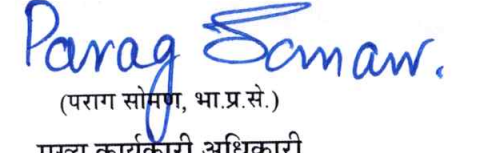 Parag Soman.
(पराग सोमण, भा.प्र.से.)
मुख्य कार्यकारी अधिकारी